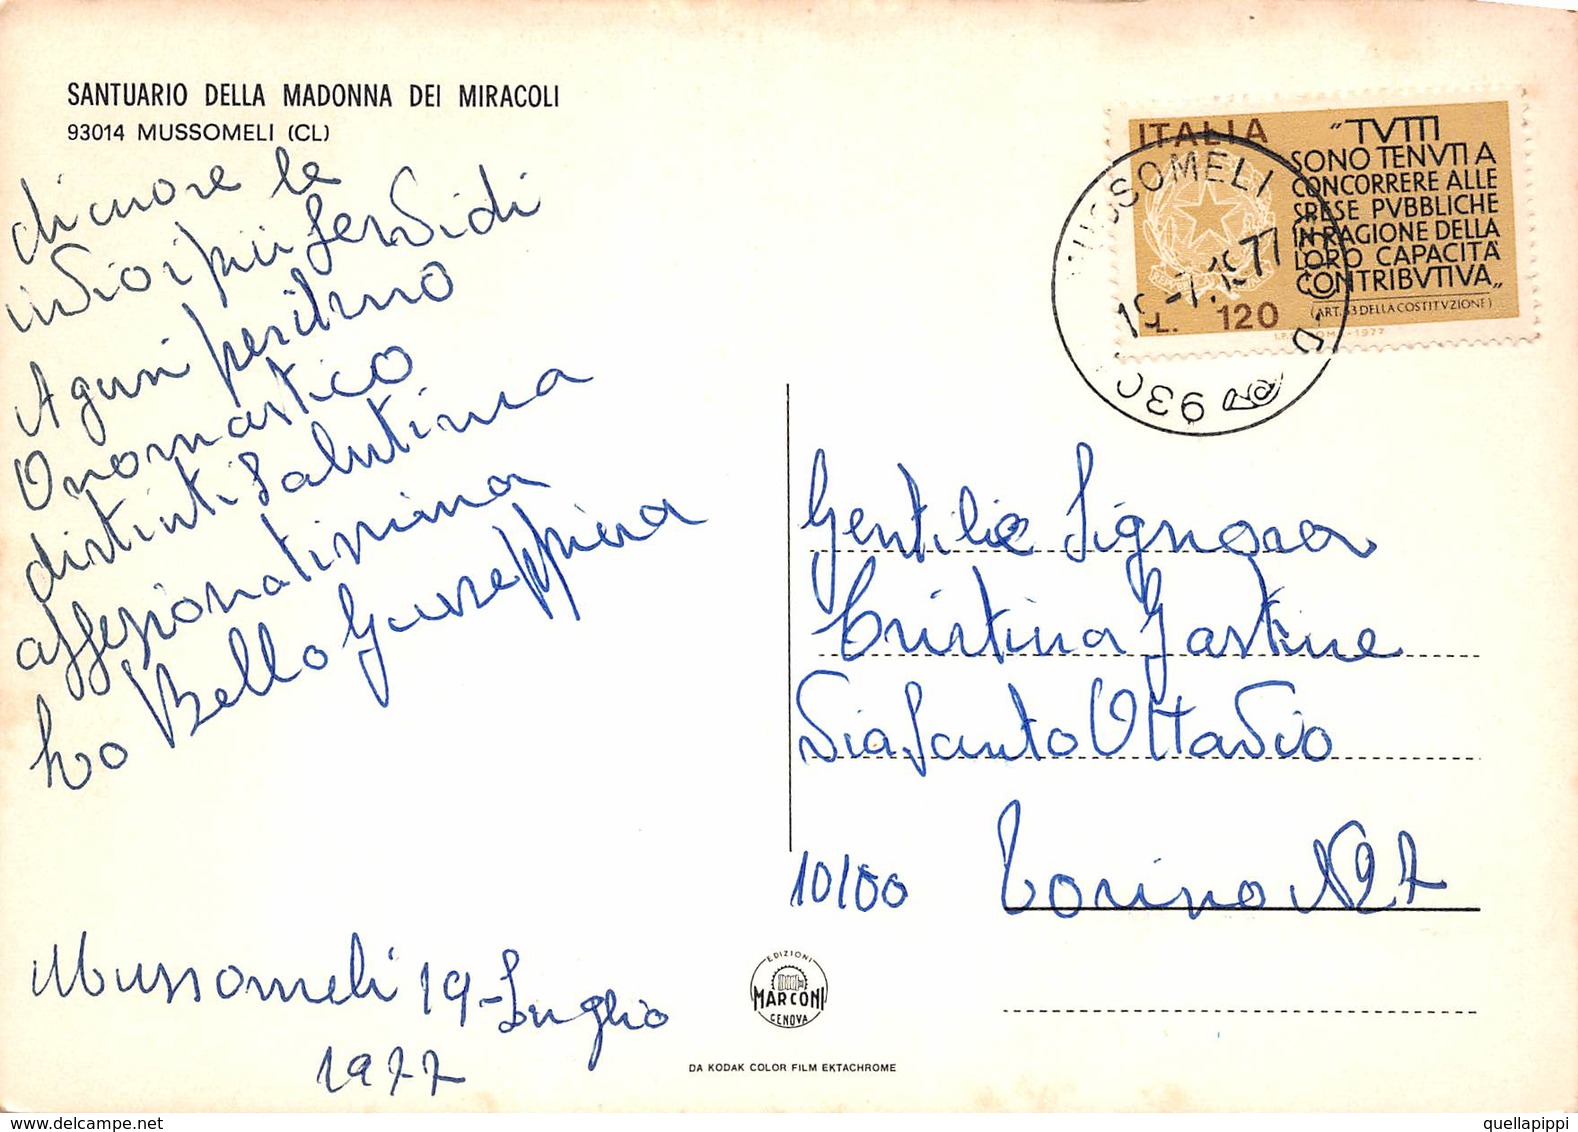 SANTUARIO DELLA MADONNA DEI MIRACOLI
93014 MUSSOMELI (CL)
di cuore le
invio i più fervidi
Aguri per il suo
Onomastico
distinti saluti sua
affezionatissima
Bello Giuseppiena
Mussomeli 19-Luglio
1977
ITALIA
"TVTTI
SONO TENVTI A
CONCORRERE ALLE
SPESE PVBBLICHE
IN RAGIONE DELLA
LORO CAPACITÀ
CONTRIBVTIVA"
(ART. 53 DELLA COSTITVZIONE)
L. 120
MUSSOMELI
Gentile Signora
Cristina Gastine
Via Santo Ottavio
10100 Torino N27
EDIZIONI
MARCONI
GENOVA
DA KODAK COLOR FILM EKTACHROME
quellapippi